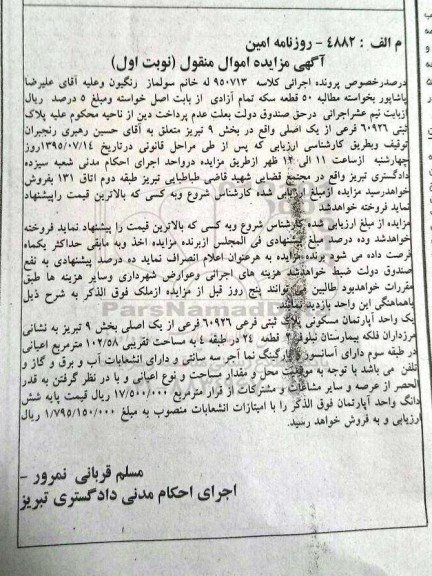 م الف : ۴۸۸۲ - روزنامه امین
آگهی مزایده اموال منقول (نوبت اول)
درصدرخصوص پرونده اجرائی کلاسه ۹۵۰۷۱۳ له خانم سولماز رنگیون وعلیه آقای علیرضا
پاشاپور بخواسته مطالبه ۵۰ قطعه سکه تمام آزادی از بابت اصل خواسته ومبلغ ۵ درصد ریال
ازبابت نیم عشراجرائی درحق صندوق دولت بعلت عدم پرداخت دین از ناحیه محکوم علیه پلاک
ثبتی ۶۰۹۲۶ فرعی از یک اصلی واقع در بخش ۹ تبریز متعلق به آقای حسین رهبری رنجبران
توقیف وبطریق کارشناسی ارزیابی که پس از طی مراحل قانونی درتاریخ ۱۳۹۵/۰۷/۱۴روز
چهارشنبه ازساعت ۱۱ الی ۱۲ ظهر ازطریق مزایده درواحد اجرای احکام مدنی شعبه سیزده
دادگستری تبریز واقع در مجتمع قضایی شهید قاضی طباطبایی تبریز طبقه دوم اتاق ۱۳۱ بفروش
خواهدرسید مزایده ازمبلغ ارزیابی شده کارشناس شروع وبه کسی که بالاترین قیمت راپیشنهاد
نماید فروخته خواهدشد
مزایده از مبلغ ارزیابی شده کارشناس شروع وبه کسی که بالاترین قیمت را پیشنهاد نماید فروخته
خواهدشد وده درصد مبلغ پیشنهادی فی المجلس ازبرنده مزایده اخذ وبه مابقی حداکثر یکماه
فرصت داده می شود برنده مزایده به هرعنوان اعلام انصراف نماید ده درصد پیشنهادی به نفع
صندوق دولت ضبط خواهدشد هزینه های اجرائی وعوارض شهرداری وسایر هزینه ها طبق
مقررات خواهدبود طالبین می توانند پنج روز قبل از مزایده ازملک فوق الذکر به شرح ذیل
باهماهنگی این واحد بازدید نمایند
یک واحد آپارتمان مسکونی پلاک ثبتی فرعی ۶۰۹۲۶ فرعی از یک اصلی بخش ۹ تبریز به نشانی
مرزداران فلکه بیمارستان نیلوفر ۲ قطعه ۲۴ در طبقه ۴ به مساحت تقریبی ۱۰۲/۵۸ مترمربع اعیانی
در طبقه سوم دارای آسانسور و پارکینگ نما آجر سه سانتی و دارای انشعابات آب و برق و گاز و
تلفن می باشد با توجه به موقعیت محل و مقدار مساحت و نوع اعیانی و با در نظر گرفتن به قدر
الحصر از عرصه و سایر مشاعات و مشترکات از قرار مترمربع ۱۷/۵۰۰/۰۰۰ ریال قیمت پایه شش
دانگ واحد آپارتمان فوق الذکر را با امتیازات انشعابات منصوب به مبلغ ۱/۷۹۵/۱۵۰/۰۰۰ ریال
ارزیابی و به فروش خواهد رسید.
مسلم قربانی نمرور -
اجرای احکام مدنی دادگستری تبریز